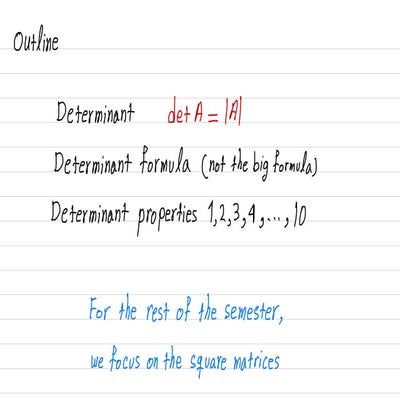 Outline
Determinant det A = |A|
Determinant formula (not the big formula)
Determinant properties 1,2,3,4,...,10
For the rest of the semester,
we focus on the square matrices